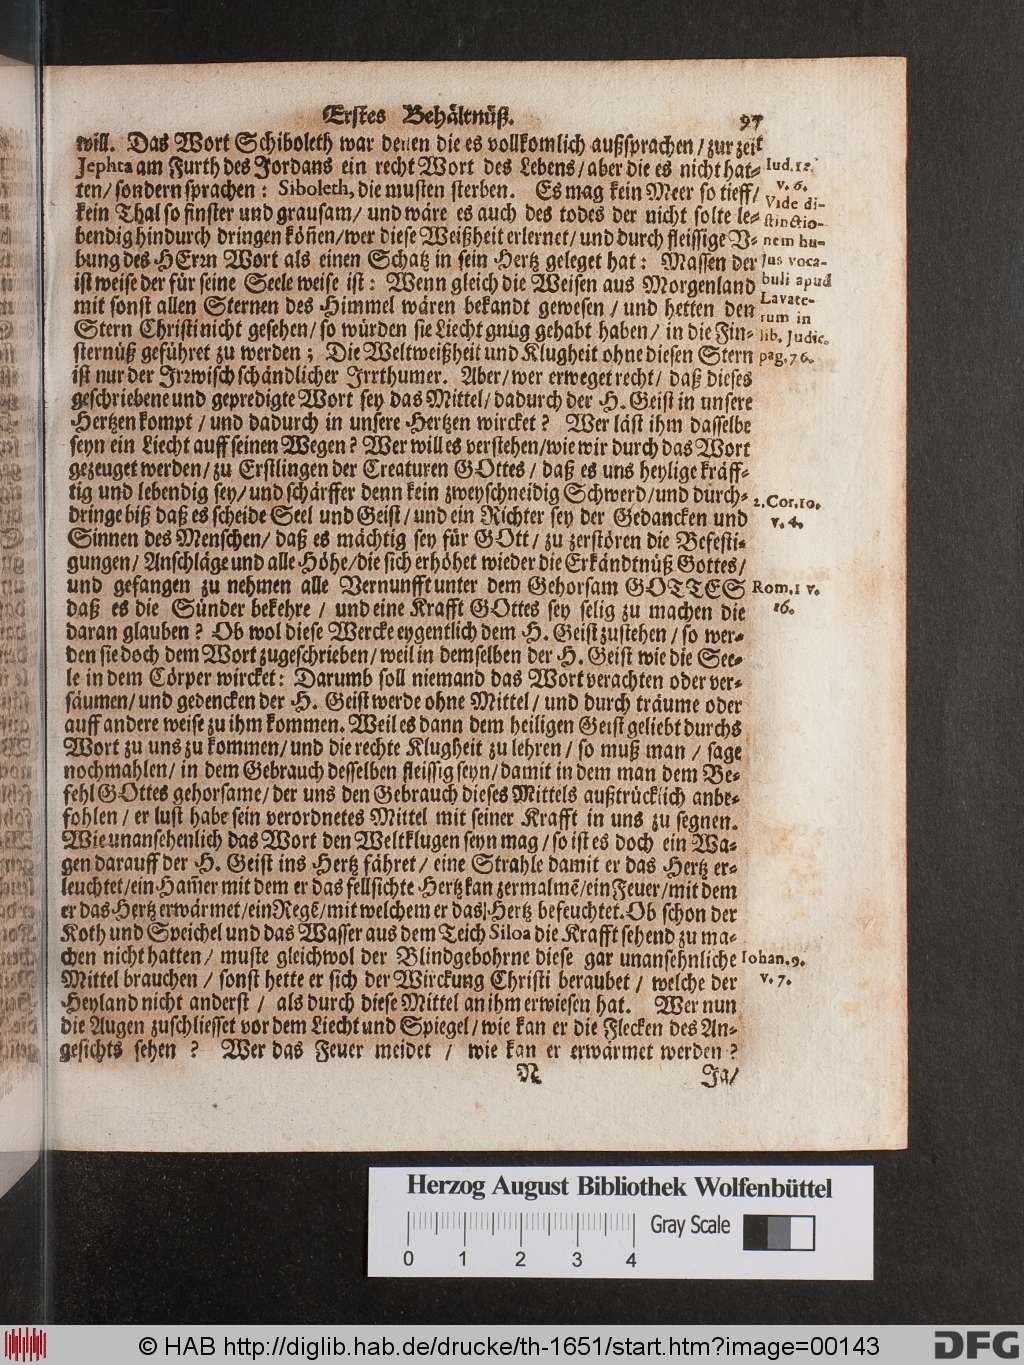 Erstes Behältnüß. 97
will. Das Wort Schiboleth war denen die es vollkomlich außsprachen / zur zeit
Jephta am Furth des Jordans ein recht Wort des Lebens / aber die es nicht hat-
ten / sondern sprachen: Siboleth, die musten sterben. Es mag kein Meer so tieff /
kein Thal so finster und grausam / und wäre es auch des todes der nicht solte le-
bendig hindurch dringen köñen / wer diese Weißheit erlernet / und durch fleissige V-
bung des HErrn Wort als einen Schatz in sein Hertz geleget hat: Massen der
ist weise der für seine Seele weise ist: Wenn gleich die Weisen aus Morgenland
mit sonst allen Sternen des Himmel wären bekandt gewesen / und hetten den
Stern Christi nicht gesehen / so würden sie Liecht gnug gehabt haben / in die Fin-
sternüß geführet zu werden; Die Weltweißheit und Klugheit ohne diesen Stern
ist nur der Irrwisch schändlicher Irrthumer. Aber / wer erweget recht / daß dieses
geschriebene und gepredigte Wort sey das Mittel / dadurch der H. Geist in unsere
Hertzen kompt / und dadurch in unsere Hertzen wircket? Wer läst ihm dasselbe
seyn ein Liecht auff seinen Wegen? Wer will es verstehen / wie wir durch das Wort
gezeuget werden / zu Erstlingen der Creaturen GOttes / daß es uns heylige kräff-
tig und lebendig sey / und schärffer denn kein zweyschneidig Schwerd / und durch-
dringe biß daß es scheide Seel und Geist / und ein Richter sey der Gedancken und
Sinnen des Menschen / daß es mächtig sey für GOtt / zu zerstören die Befesti-
gungen / Anschläge und alle Höhe / die sich erhöhet wieder die Erkändtnüß Gottes /
und gefangen zu nehmen alle Vernunfft unter dem Gehorsam GOTTES
daß es die Sünder bekehre / und eine Krafft GOttes sey selig zu machen die
daran glauben? Ob wol diese Wercke eygentlich dem H. Geist zustehen / so wer-
den sie doch dem Wort zugeschrieben / weil in demselben der H. Geist wie die See-
le in dem Cörper wircket: Darumb soll niemand das Wort verachten oder ver-
säumen / und gedencken der H. Geist werde ohne Mittel / und durch träume oder
auff andere weise zu ihm kommen. Weil es dann dem heiligen Geist geliebt durchs
Wort zu uns zu kommen / und die rechte Klugheit zu lehren / so muß man / sage
nochmahlen / in dem Gebrauch desselben fleissig seyn / damit in dem man dem Be-
fehl GOttes gehorsame / der uns den Gebrauch dieses Mittels außtrücklich anbe-
fohlen / er lust habe sein verordnetes Mittel mit seiner Krafft in uns zu segnen.
Wie unansehenlich das Wort den Weltklugen seyn mag / so ist es doch ein Wa-
gen darauff der H. Geist ins Hertz fähret / eine Strahle damit er das Hertz er-
leuchtet / ein Ham̃er mit dem er das fellsichte Hertz kan zermalmẽ / ein Feuer / mit dem
er das Hertz erwärmet / ein Regẽ / mit welchem er das Hertz befeuchtet. Ob schon der
Koth und Speichel und das Wasser aus dem Teich Siloa die Krafft sehend zu ma-
chen nicht hatten / muste gleichwol der Blindgebohrne diese gar unansehnliche
Mittel brauchen / sonst hette er sich der Wirckung Christi beraubet / welche der
Heyland nicht anderst / als durch diese Mittel an ihm erwiesen hat. Wer nun
die Augen zuschliesset vor dem Liecht und Spiegel / wie kan er die Flecken des An-
gesichts sehen? Wer das Feuer meidet / wie kan er erwärmet werden?
N Ja /
Iud. 12.
v. 6.
Vide di-
stinctio-
nem hu-
jus voca-
buli apud
Lavate-
rum in
lib. Judic.
pag. 76.
2. Cor. 10.
v. 4.
Rom. 1 v.
16.
Iohan. 9.
v. 7.
Herzog August Bibliothek Wolfenbüttel
Gray Scale
0 1 2 3 4
© HAB http://diglib.hab.de/drucke/th-1651/start.htm?image=00143
DFG